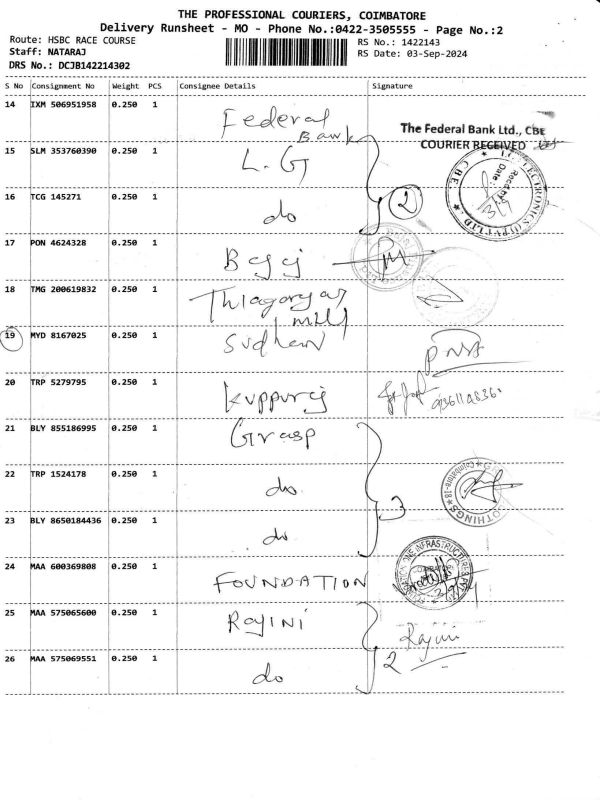 THE PROFESSIONAL COURIERS, COIMBATORE
Delivery Runsheet - MO - Phone No.:0422-3505555 - Page No.:2
Route: HSBC RACE COURSE
RS No.: 1422143
Staff: NATARAJ
RS Date: 03-Sep-2024
DRS No.: DCJB142214302
S No Consignment No Weight PCS Consignee Details Signature
14 IXM 506951958 0.250 1 Federal Bank
The Federal Bank Ltd., CBE
COURIER RECEIVED
15 SLM 353760390 0.250 1 L.G
16 TCG 145271 0.250 1 do 2
17 PON 4624328 0.250 1 Bajaj
18 TMG 200619832 0.250 1 Thiagarajar mill
19 MYD 8167025 0.250 1 Sudhan
20 TRP 5279795 0.250 1 Kuppuraj
21 BLY 855186995 0.250 1 Grasp
22 TRP 1524178 0.250 1 do
23 BLY 8650184436 0.250 1 do 3
24 MAA 600369808 0.250 1 FOUNDATION
25 MAA 575065600 0.250 1 RAJINI Rajini
26 MAA 575069551 0.250 1 do 2